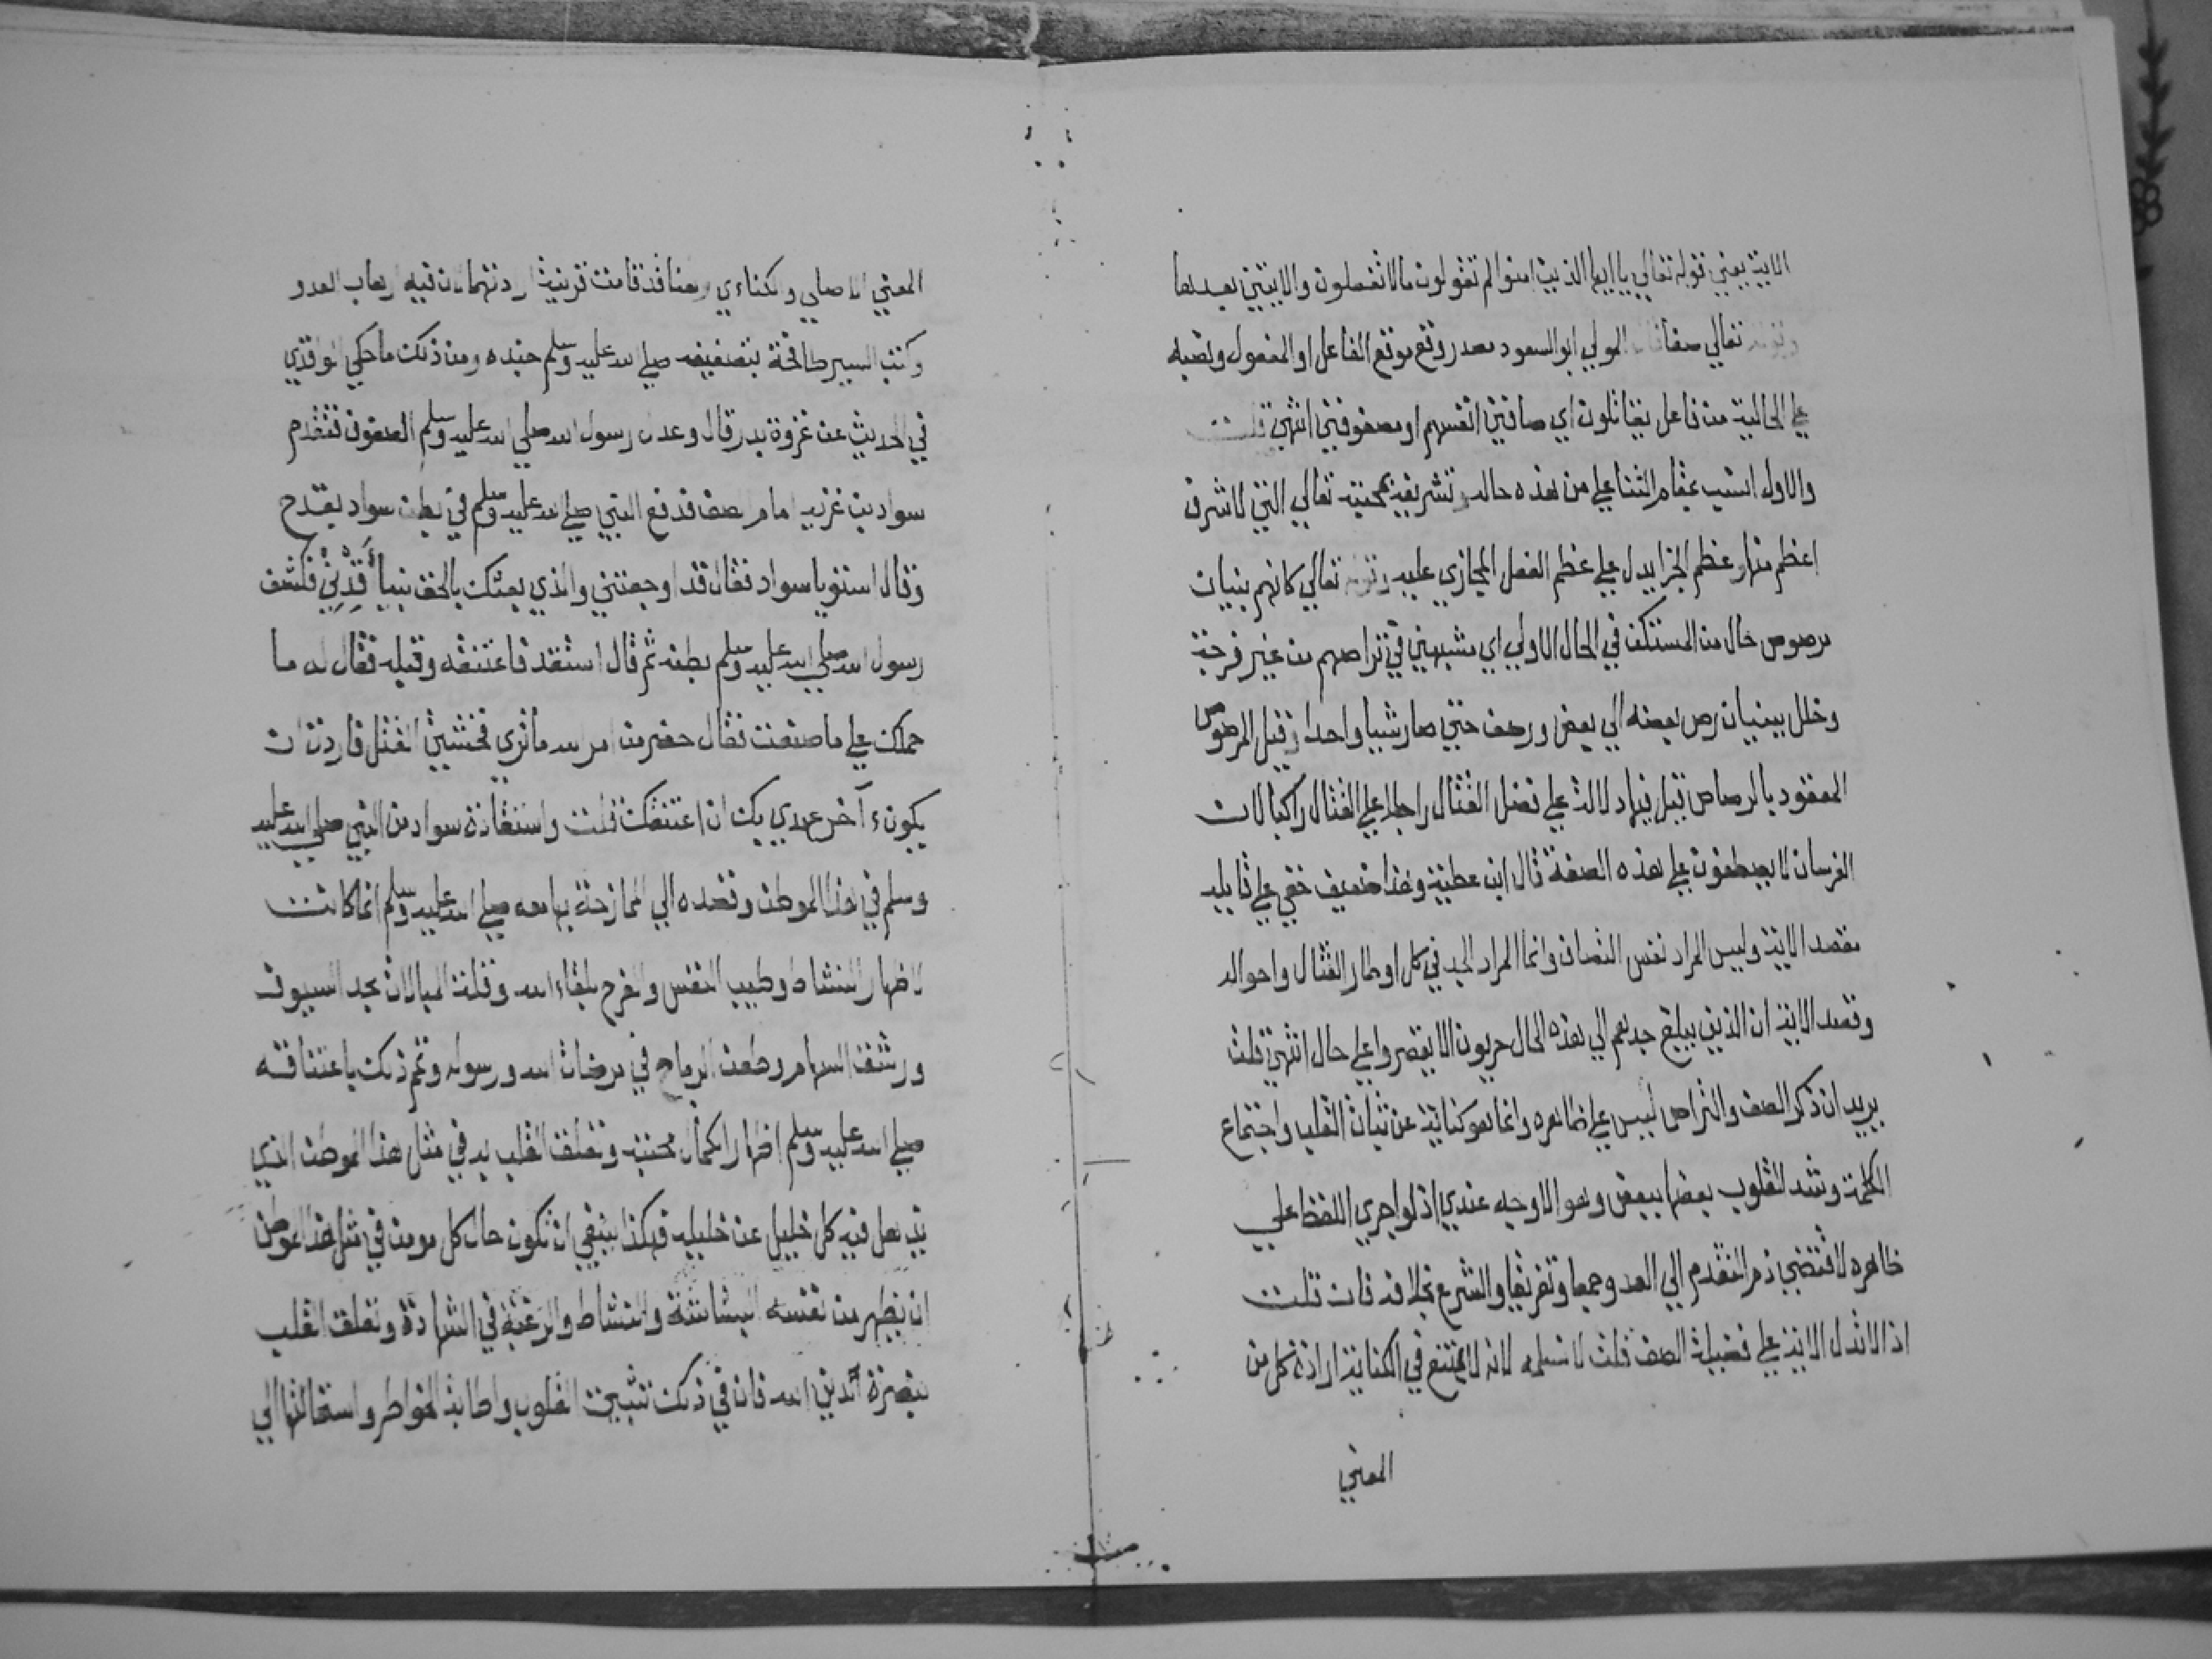 الاية يعني قوله تعالي يا ايها الذين امنوا لم تقولون ما لا تفعلون والايتين بعدها
وقوله تعالي صفا قال المولي ابو السعود مصدر وقع موقع الفاعل او المفعول ونصبه
علي الحالية من فاعل يقاتلون اي صافين انفسهم او مصفوفين انتهي قلت
والاول انسب بمقام الثنا علي من هذه حاله وتشريفه بمحبته تعالي التي لا شرف
اعظم منها وعظم الجزا يدل علي عظم الفعل المجازي عليه وقوله تعالي كانهم بنيان
مرصوص حال من المستكن في الحال الاولي اي مشبهين في تراصهم من غير فرجة
وخلل ببنيان رص بعضه الي بعض ورصف حتي صار شيا واحدا وقيل المرصوص
المعقود بالرصاص قيل فيها دلالة علي فضل القتال راجلا علي القتال راكبا لان
الفرسان لا يصطفون علي هذه الصفة قال ابن عطية وهذا ضعيف خفي علي قايله
مقصد الاية وليس المراد نفس التصاف وانما المراد الجد في كل اوطار القتال واحواله
وقصد الاية ان الذين يبلغ جدهم الي هذه الحال حريون الا يقصروا علي حال انتهي قلت
يريد ان ذكر الصف والتراص ليس علي ظاهره وانما هو كناية عن ثبات القلب واجتماع
الكلمة وشد القلوب بعضها ببعض وهو الاوجه عندي اذ لو اجري اللفظ علي
ظاهره لاقتضي ذم التقدم الي العدو جمعا وتفريقا والشرع بخلافه فان قلت
اذا لا تدل الاية علي فضيلة الصف قلت لا نسلم لانه لا يمتنع في الكناية ارادة كل من
المعني
المعني الاصلي والكناءي وهنا قد قامت قرينة ارادتهما لان فيه ارهاب العدو
وكتب السير طافحة بتصفيفه صلي الله عليه وسلم جنده ومن ذلك ما حكي الواقدي
في الحديث عن غزوة بدر قال وعدل رسول الله صلي الله عليه وسلم الصفوف فتقدم
سواد بن غزيه امام الصف فدفع النبي صلي الله عليه وسلم في بطن سواد بقدح
وقال استو يا سواد فقال قد اوجعتني والذي بعثك بالحق نبيا أَقِدْنِيْ فكشف
رسول الله صلي الله عليه وسلم بطنه ثم قال استقد فاعتنقه وقبله فقال له ما
حملك علي ما صنعت فقال حضر من امر الله ما تري فخشيت القتل فاردت ان
يكون آخر عهدي بك ان اعتنقك قلت واستقادة سواد من النبي صلي الله عليه
وسلم في هذا الموطن وقصده الي الممازحة بها معه صلي الله عليه وسلم انما كانت
لاظهار النشاط وطيب النفس والفرح بلقاء الله وقلة المبالاة بحد السيوف
ورشق السهام وطعن الرماح في مرضات الله ورسوله وتم ذلك باعتناقه
صلي الله عليه وسلم اظهارا لكمال محبته وتعلق القلب به في مثل هذا الموطن الذي
يذهل فيه كل خليل عن خليله فهكذا ينبغي ان تكون حال كل مومن في مثل هذا الموطن
ان يظهر من نفسه البشاشة والنشاط والرغبة في الشهادة وتعلق القلب
بنصرة دين الله فان في ذلك تثبيت القلوب واطابة الخواطر واستمالتها الي